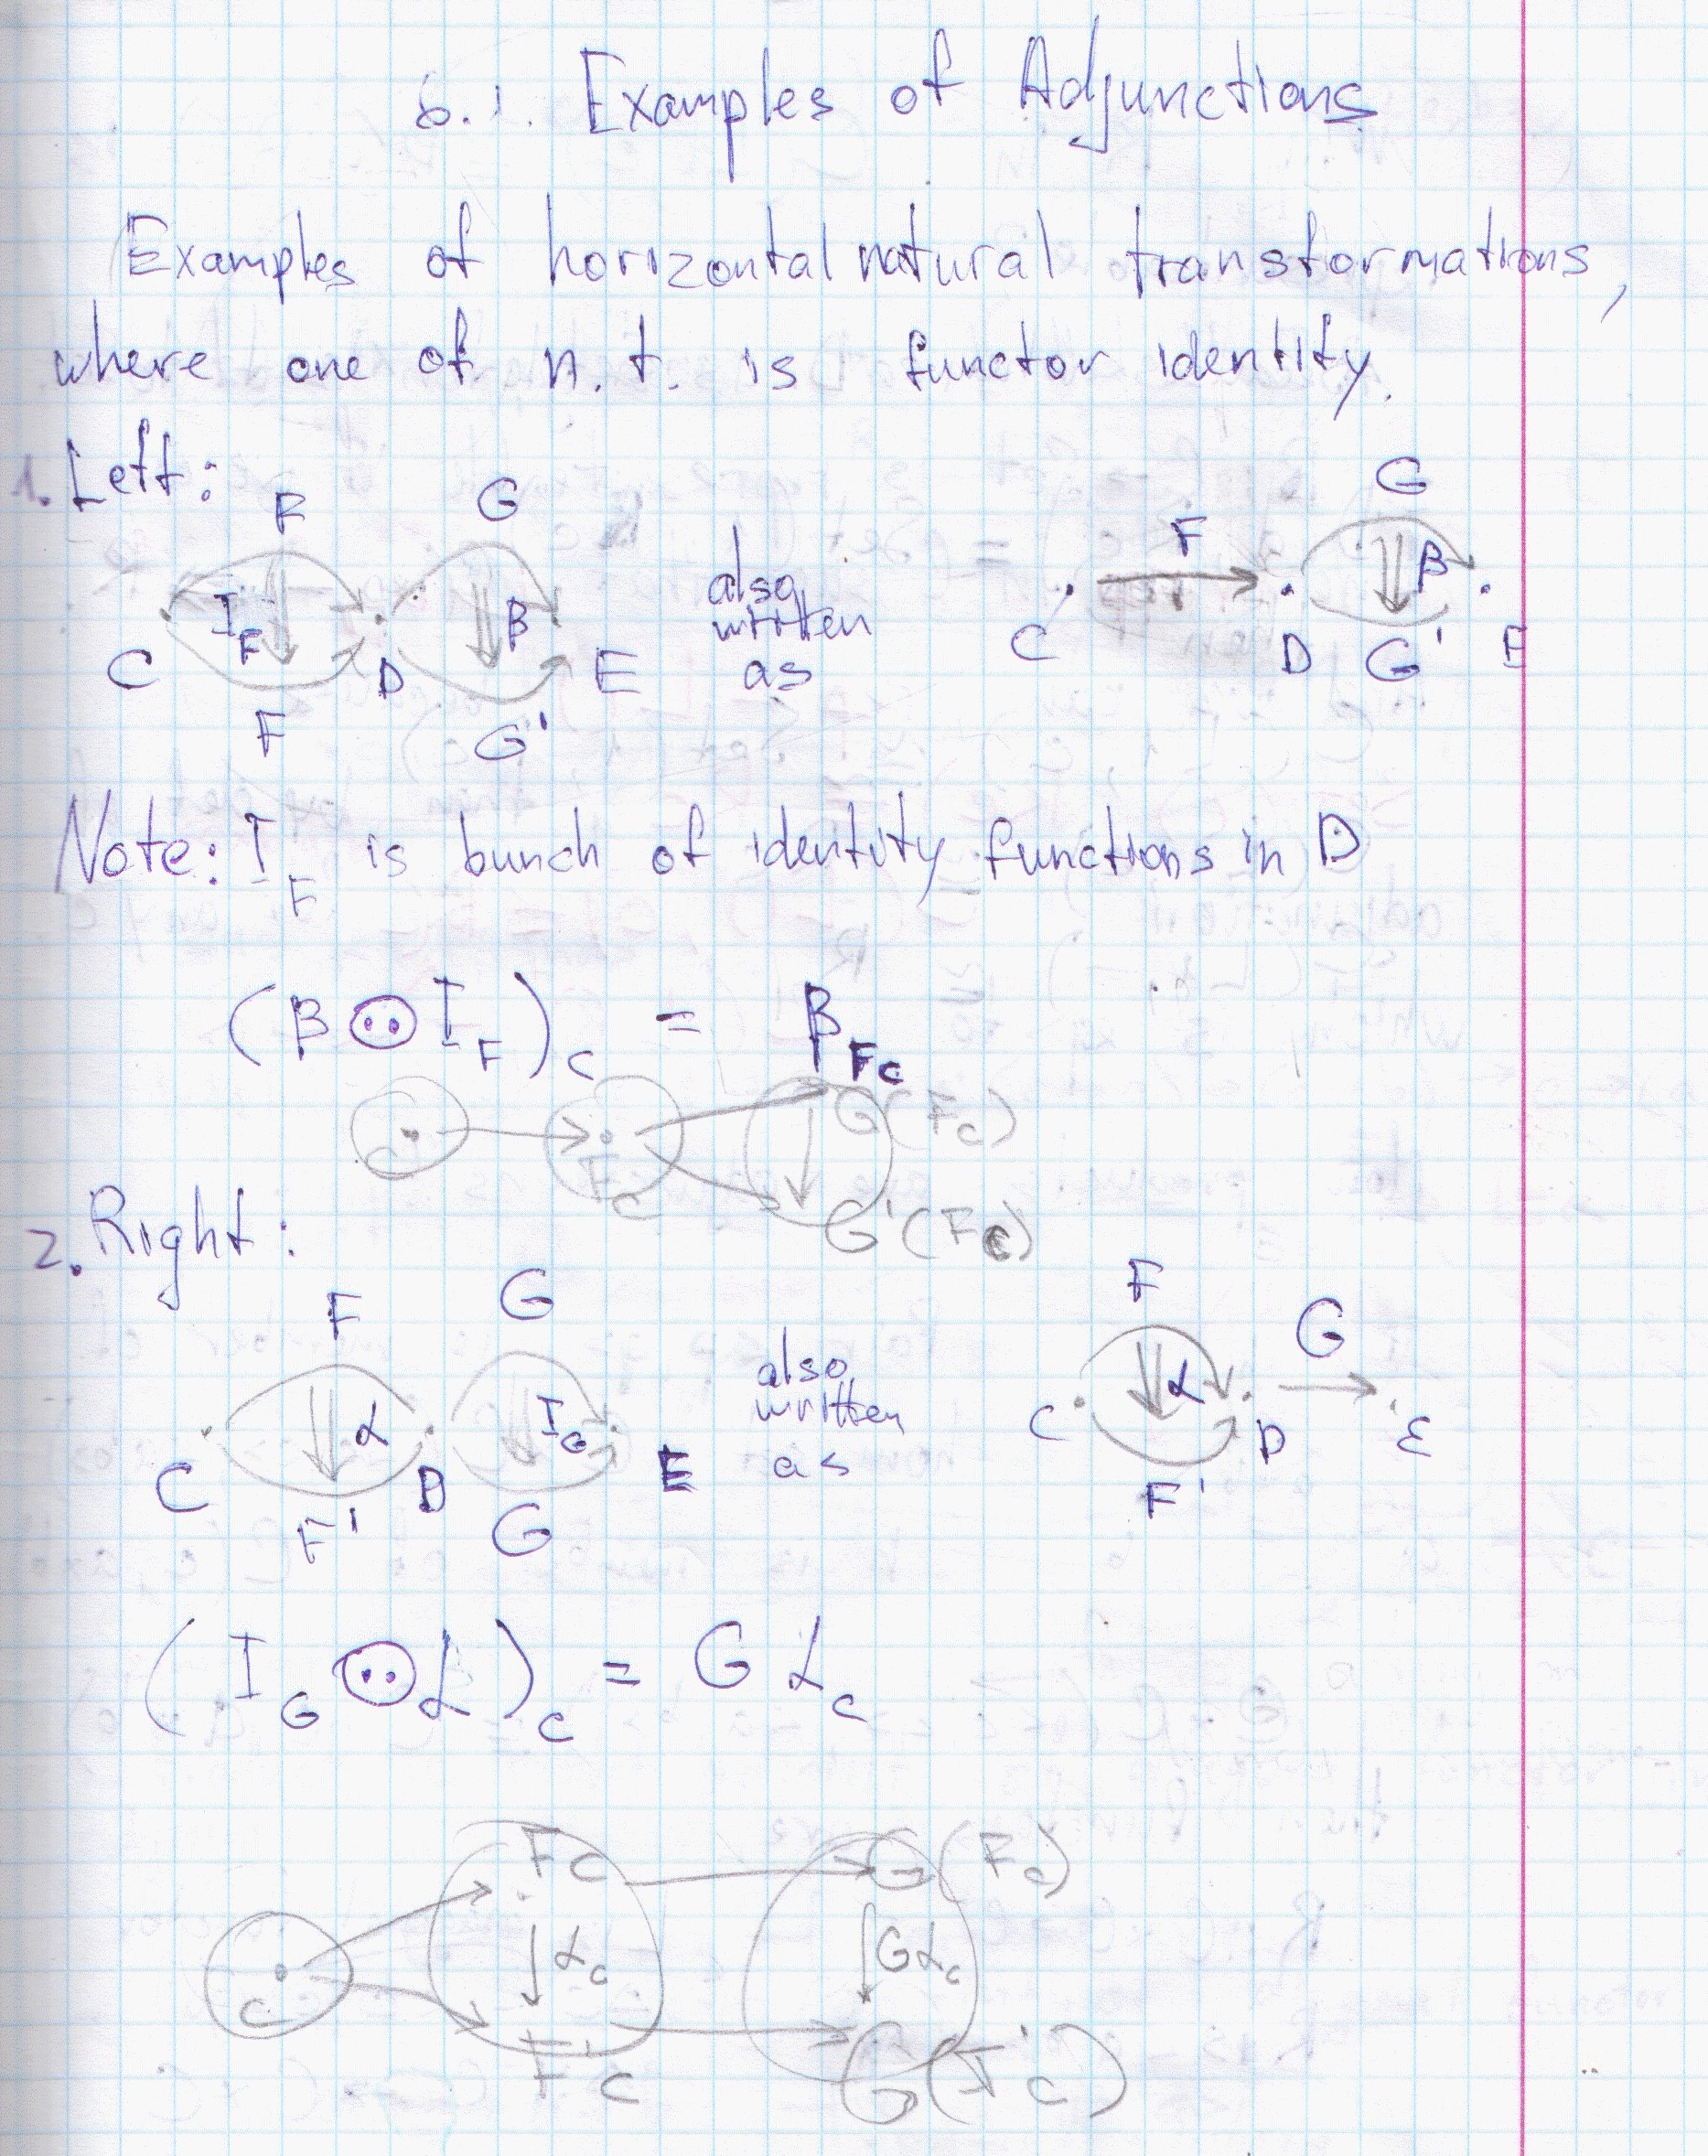 6.1. Examples of Adjunctions
Examples of horizontal natural transformations,
where one of n.t. is functor identity.
1. Left:
F G G
F
I_F β also written as β
C D E C D G' E
F G'
Note: I_F is bunch of identity functions in D
(β ⊙ I_F)_C = β_Fc
G(Fc)
c Fc
G'(Fc)
2. Right:
F G F G
α I_G also written as α
C D E C D E
F' G F'
(I_G ⊙ α)_C = G α_c
Fc G(Fc)
c α_c Gα_c
F'c G(F'c)